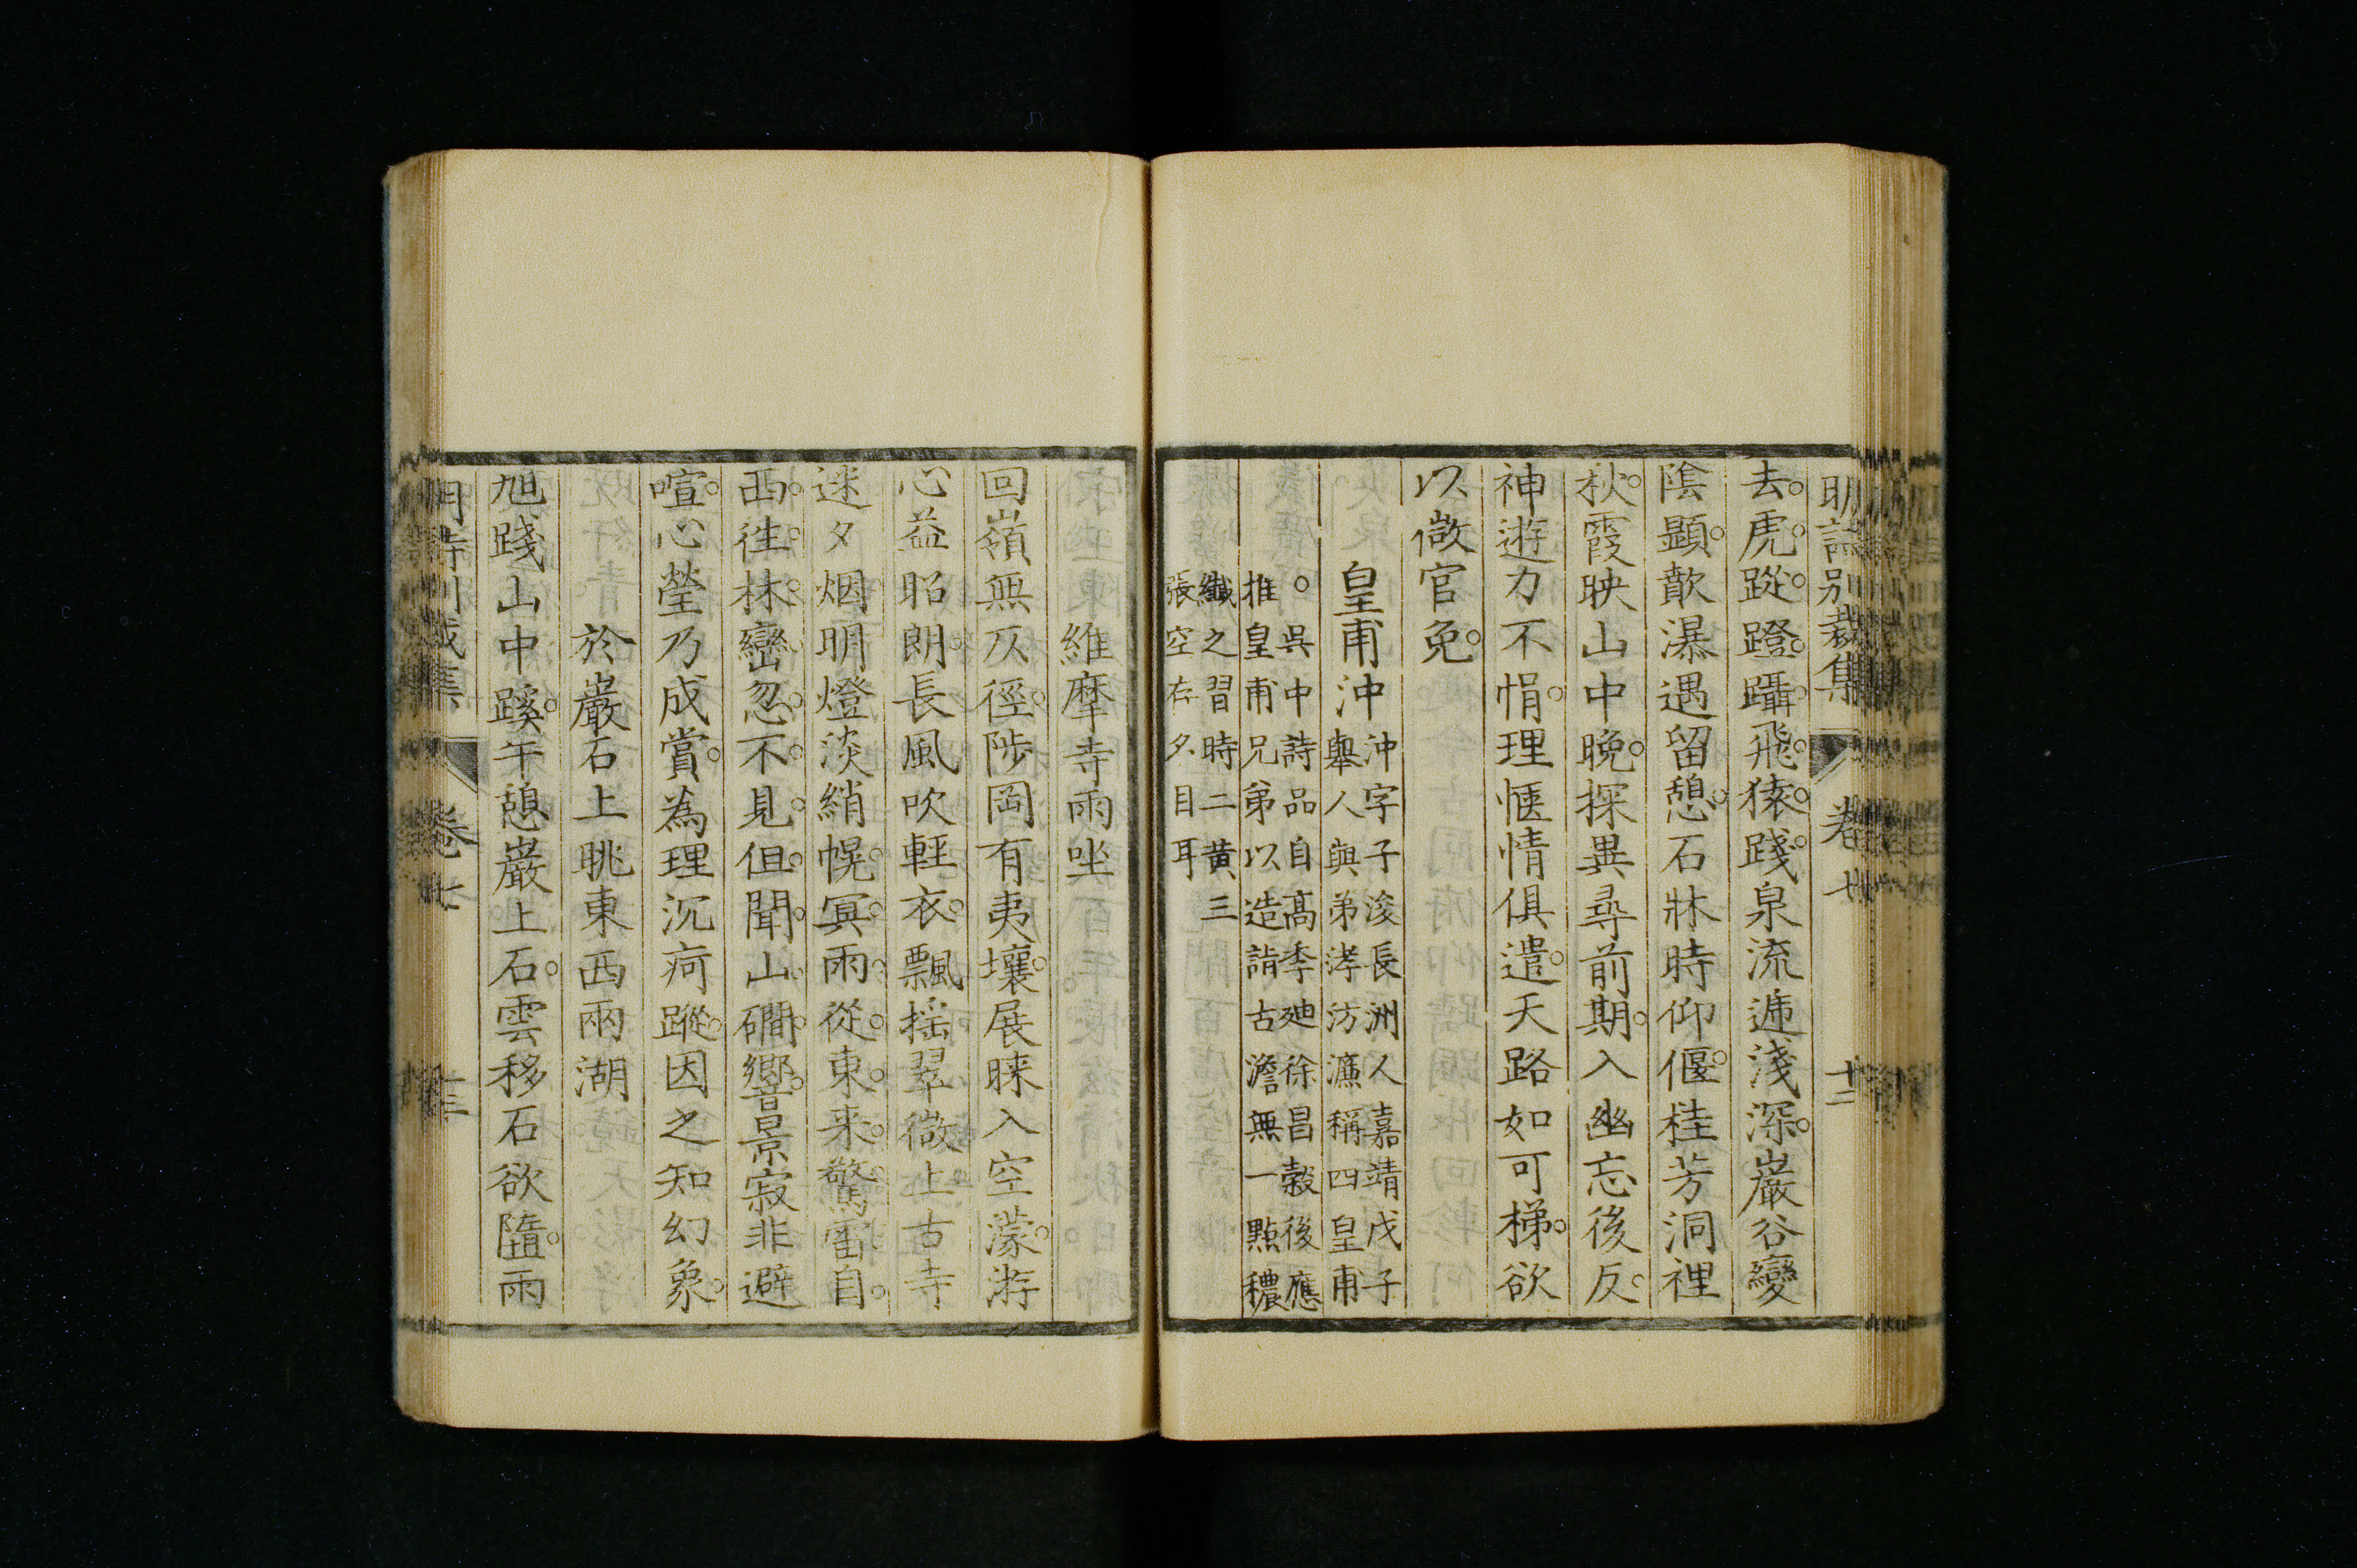 明詩別裁集 卷七 十二
去虎蹤蹬躡飛猿踐泉流遞淺深巖谷變
陰顯歕瀑遇留憩石牀時仰偃桂芳洞裡
秋霞映山中晚探異尋前期入幽忘後反
神遊力不悁理愜情俱遣天路如可梯欲
以微官免
皇甫沖
沖字子浚長洲人嘉靖戊子
舉人與弟涍汸濂稱四皇甫
○吳中詩品自高季廸徐昌穀後應
推皇甫兄弟以造詣古澹無一點穠
纖之習時二黃三
張空存夕目耳
維摩寺雨坐
回嶺無仄徑陟岡有夷壤展睞入空濛游
心益昭朗長風吹輕衣飄揺翠微上古寺
迷夕烟明燈淡綃幌冥雨從東来驚雷自
西徃林巒忽不見但聞山礀響景寂非避
喧心瑩乃成賞為理沉疴蹤因之知幻象
於巖石上眺東西兩湖
旭踐山中蹊午憩巖上石雲移石欲墮雨
卷七 十三